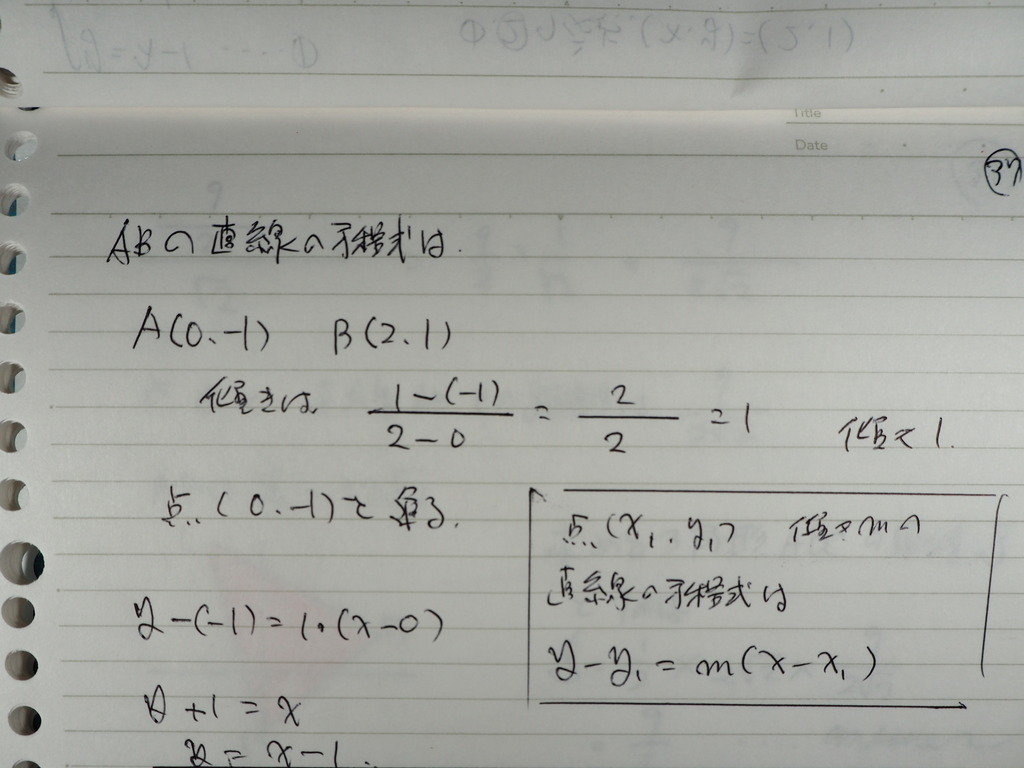 Title
Date
37
ABの直線の方程式は.
A(0.-1) B(2.1)
傾きは 1-(-1) / 2-0 = 2 / 2 = 1 傾き 1.
点(0.-1)を通る.
点(x₁.y₁) 傾き m の
直線の方程式は
y-y₁ = m(x-x₁)
y-(-1)=1・(x-0)
y+1=x
y=x-1.